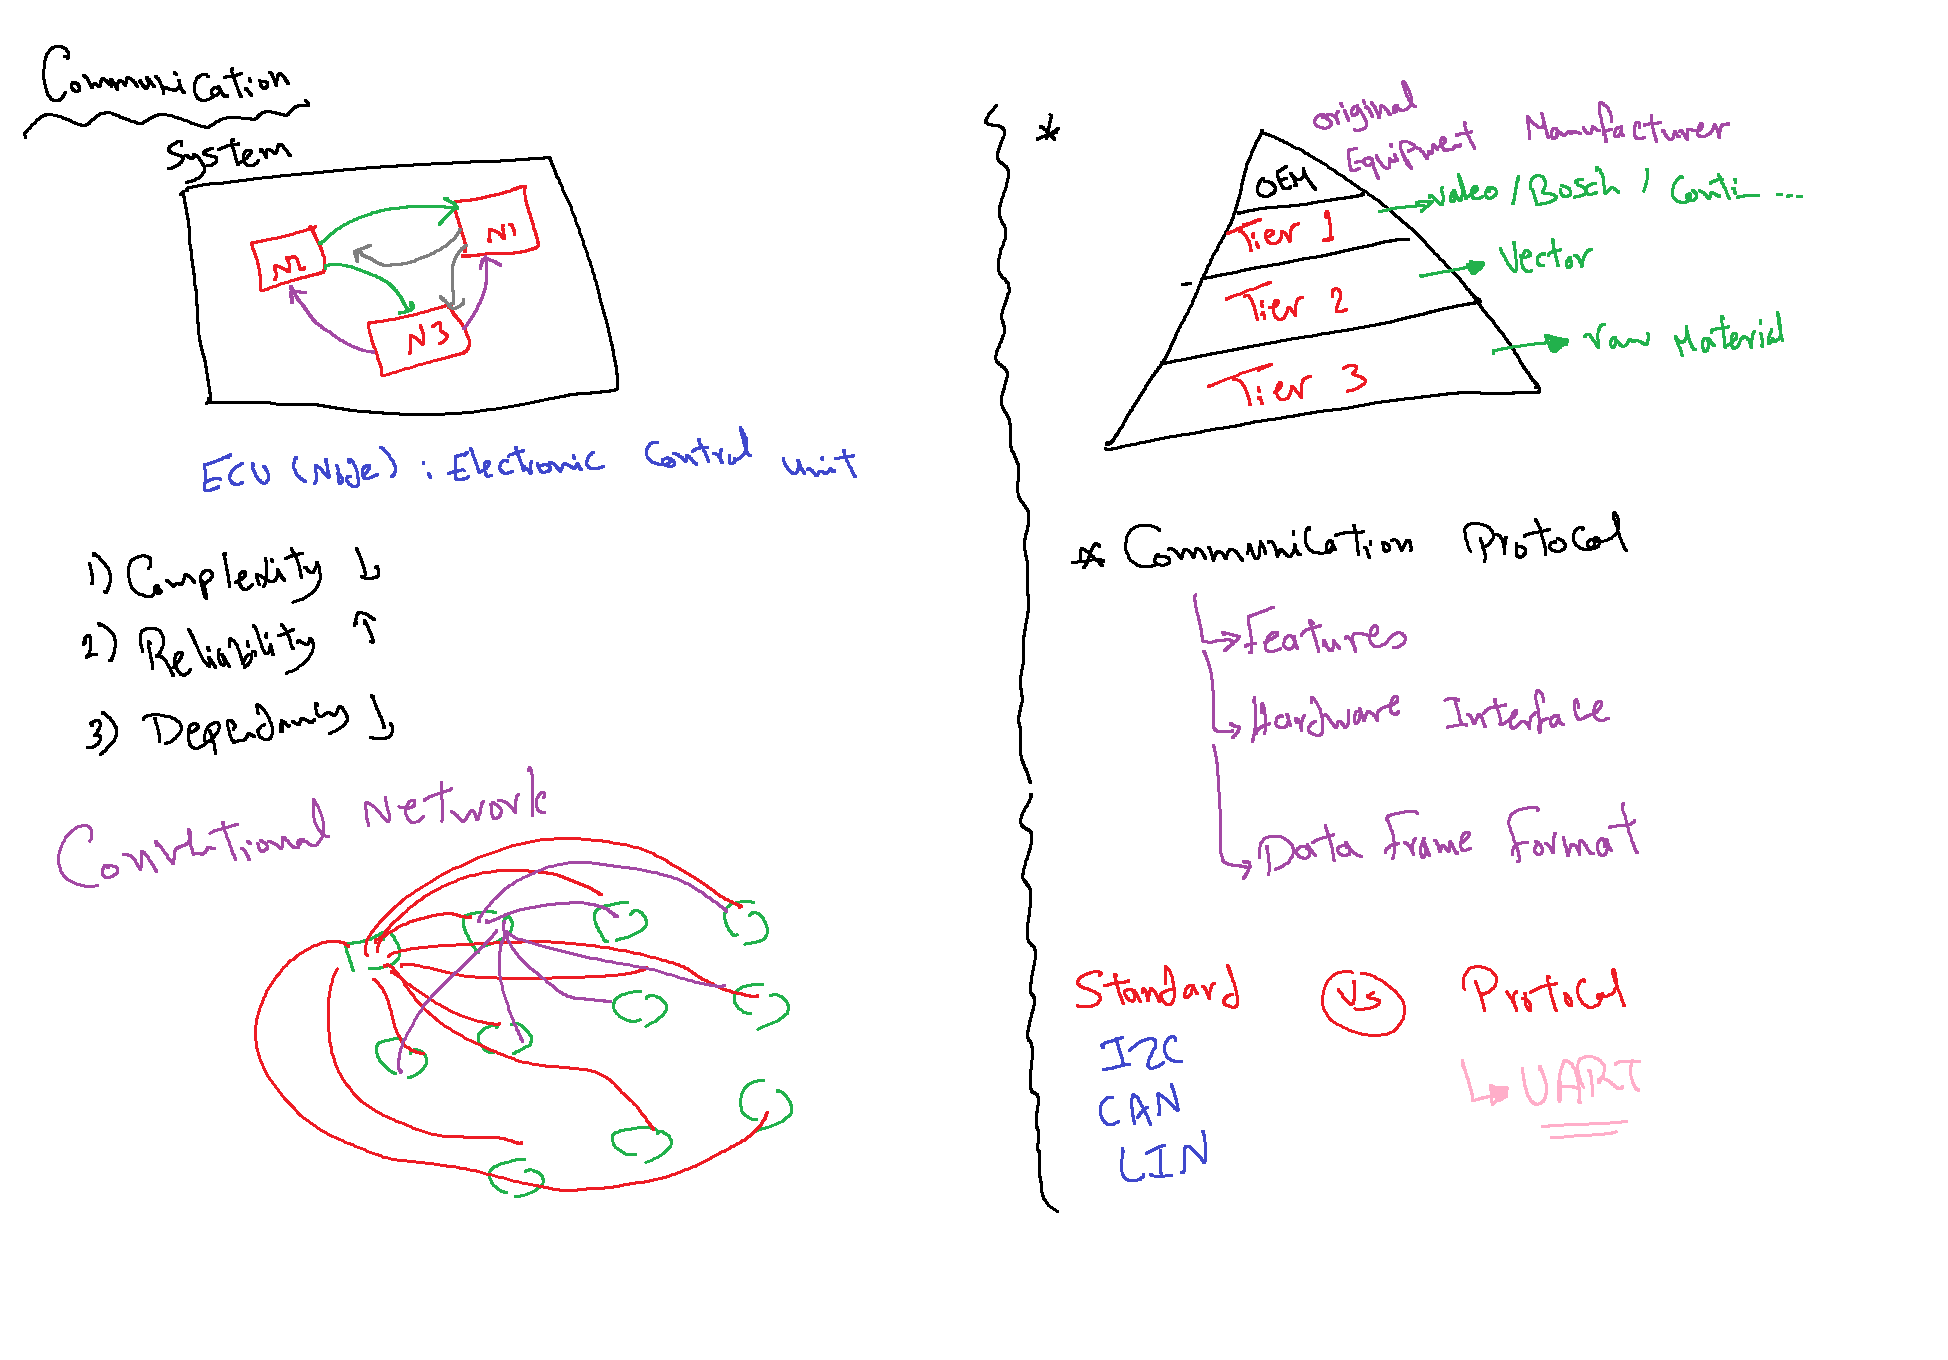 Communication
System
N1
N2
N3
ECU (Node) : Electronic Control Unit
1) Complexity ↓
2) Reliability ↑
3) Dependancy ↓
Network
*
original
Equipment Manufacturer
OEM
Valeo / Bosch / Conti ...
Tier 1
Vector
Tier 2
raw Material
Tier 3
* Communication Protocol
Features
Hardware Interface
Data Frame Format
Standard Vs Protocol
I2C
UART
CAN
LIN